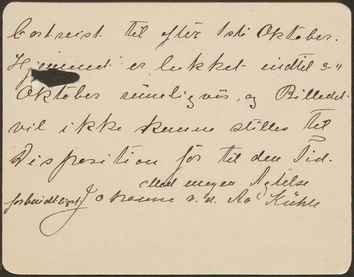 Bortreist til efter 1ste Oktober.
Hjemmet er lukket indtil 3"
Oktober rimeligvis, og Billedet
vil ikke kunne stilles til
Disposition før til den Tid.
Med megen Agtelse
forbindtligst Johanne